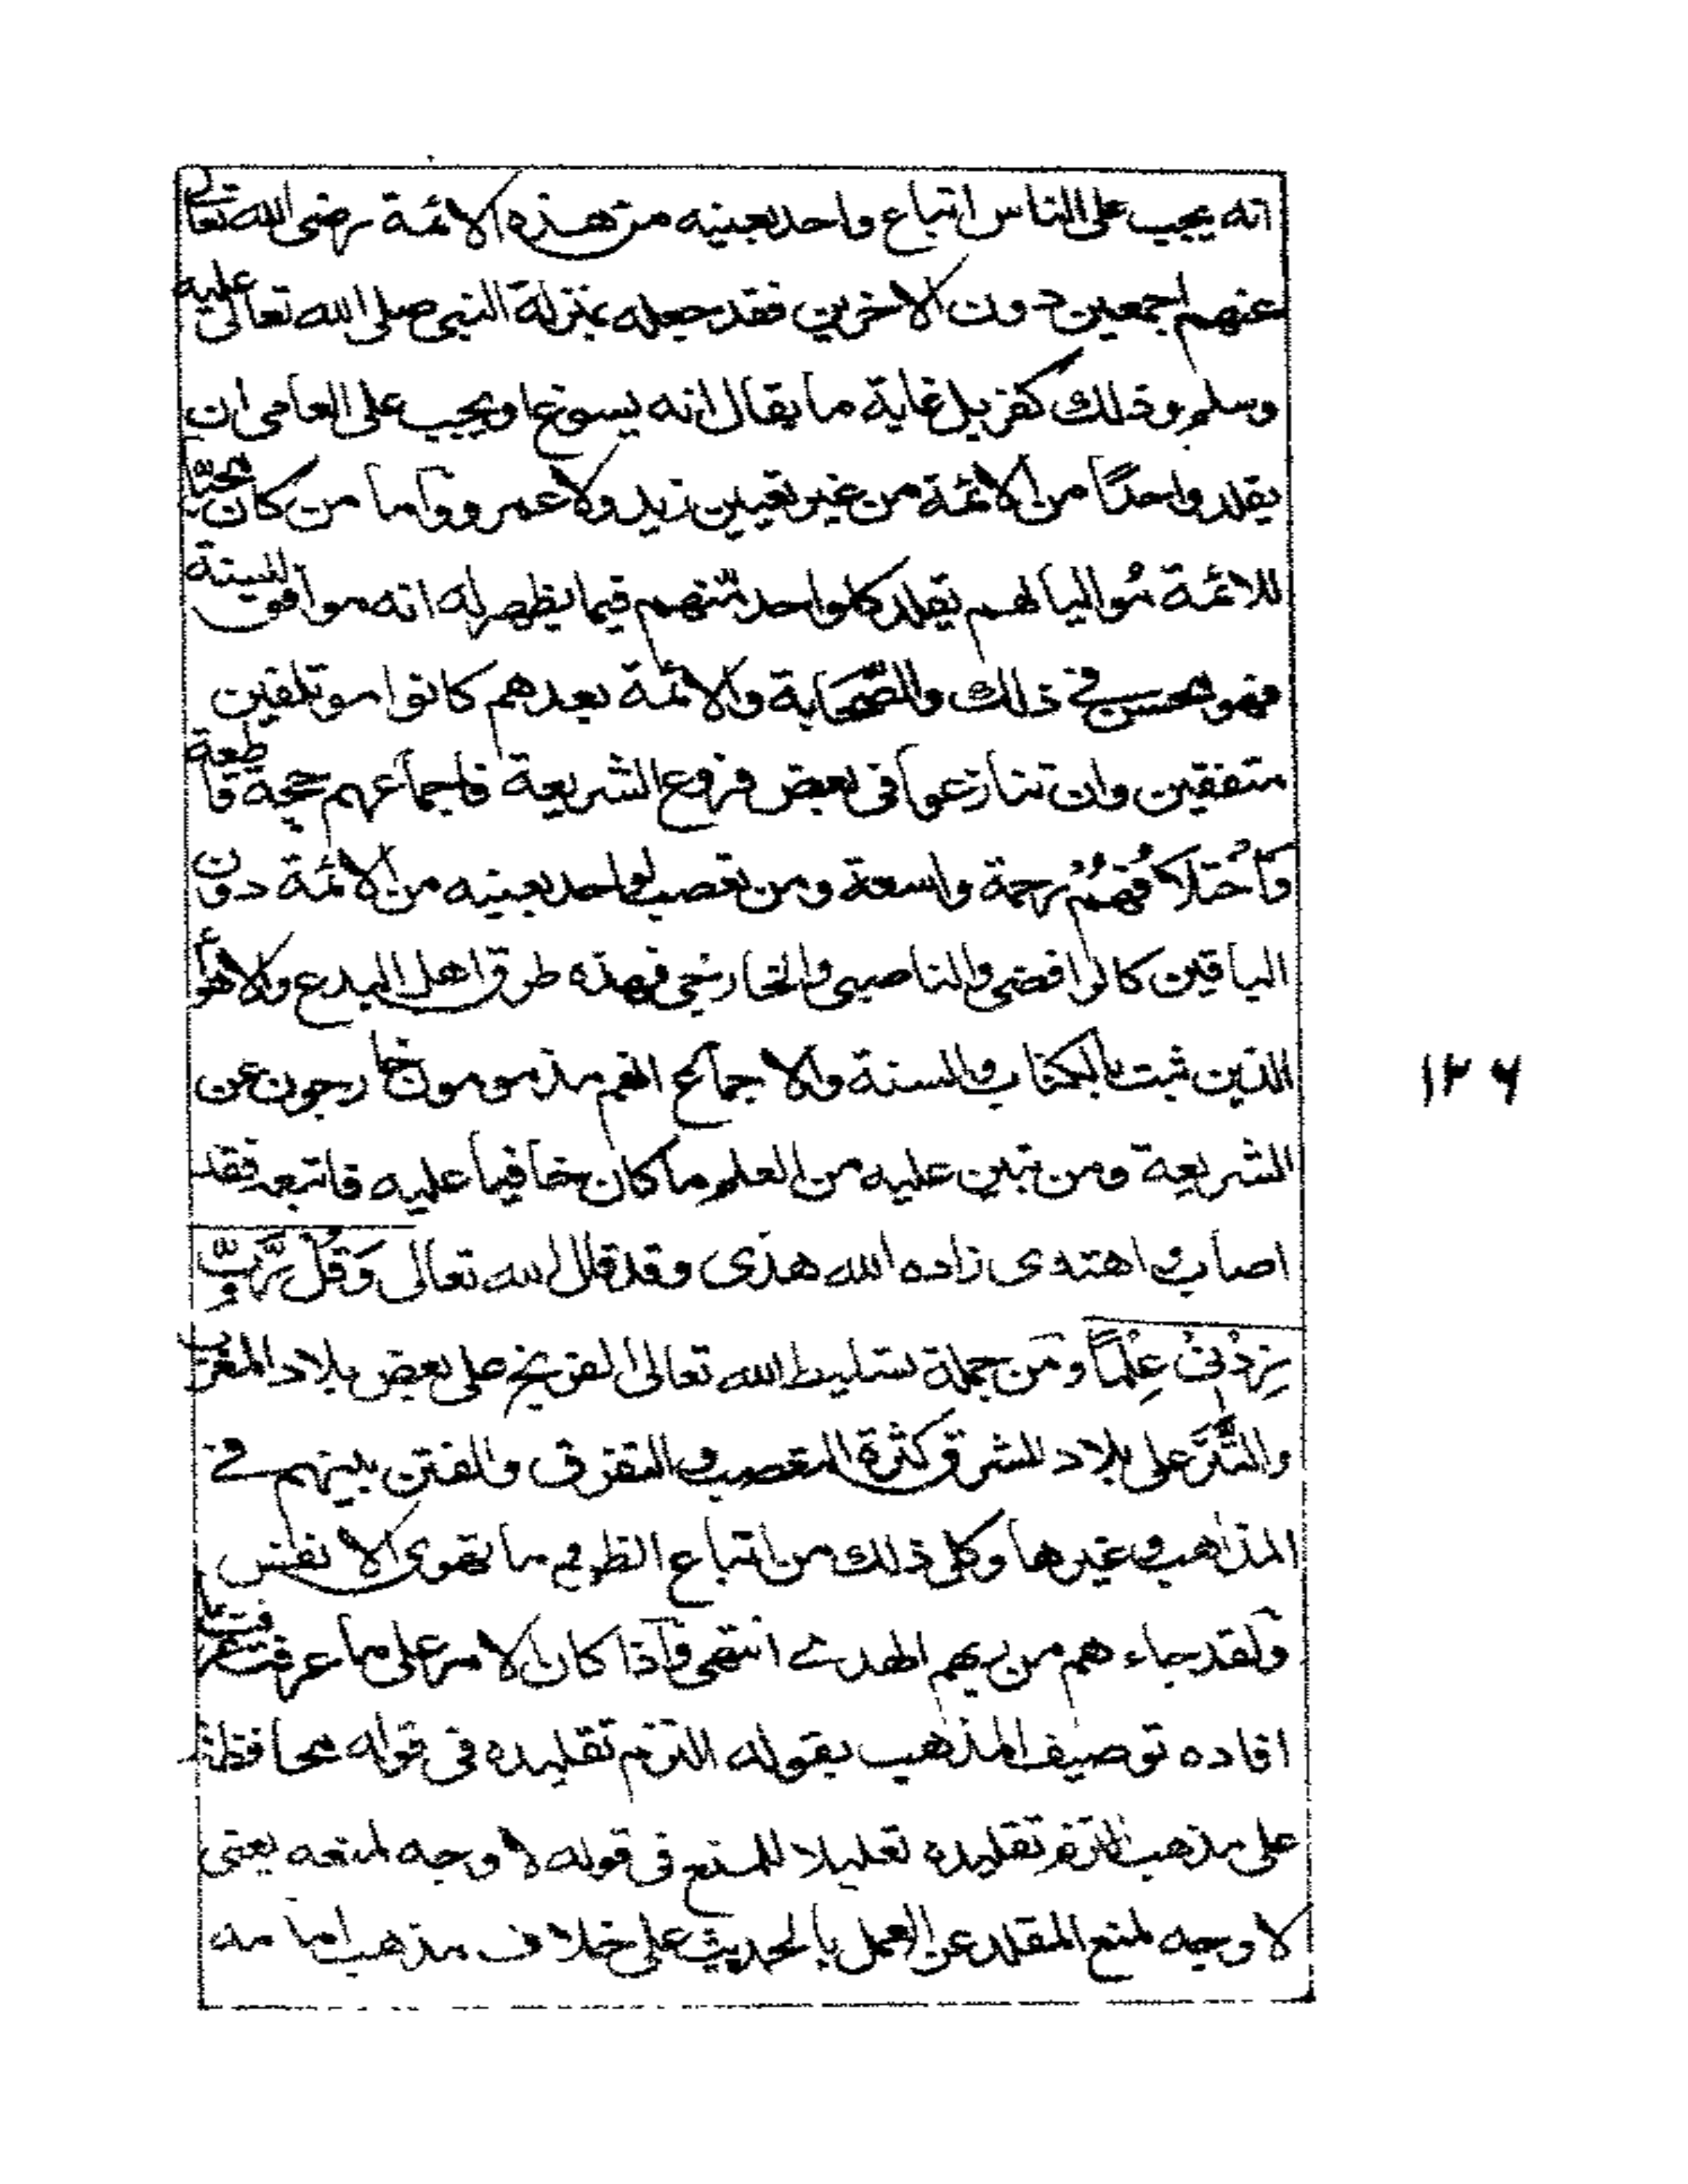 انه يجب على الناس اتباع واحد بعينه من هذه الائمة رضى الله تعالى
عنهم اجمعين دون الاخرين فقد جعله بمنزلة النبى صلى الله تعالى عليه
وسلم وذلك كفر بل غاية ما يقال انه يسوغ او يجب على العامى ان
يقلد واحدًا من الائمة من غير تعيين زيد ولا عمرو واما من كان محبّا
للائمة مُواليا لهم يقلد كل واحد منهم فيما يظهر له انه موافق للسنة
فهو محسن في ذلك والصّحابة والائمة بعدهم كانوا موتلفين
متفقين وان تنازعوا فى بعض فروع الشريعة فاجماعهم حجة قاطعة
وَاخُتلافُهُمُ رحمة واسعة ومن تعصب لواحد بعينه من الائمة دون
الباقين كالرافضى والناصبى والخارجى فهذه طرق اهل البدع والاهواء
الذين ثبت بالكتاب والسنة والاجماع انهم مذمومون خارجون عن
الشريعة ومن تبين عليه من العلم ما كان خافيا عليه فاتبعه فقد
اصاب واهتدى زاده الله هدًى وقد قال الله تعالى وَقُلُ رَّبِّ
زِدُنِىُ عِلُمًا ومن جملة تسليط الله تعالى الفرنج على بعض بلاد المغرب
والتَّتَر على بلاد المشرق كثرة التعصب والتفرق والفتن بينهم في
المذاهب وغيرها وكل ذلك من اتباع الظن وما تهوى الانفس
ولقد جاءهم من ربهم الهدے انتهى واذا كان الامر على ما عرفت عرفت ما
افاده توصيف المذهب بقوله التزم تقليده فى قوله محافظة
على مذهب التزم تقليده تعليلا للمنع فى قوله لا وجه لمنعه يعنى
لا وجه لمنع المقلد عن العمل بالحديث على خلاف مذهب امامه
١٢٦